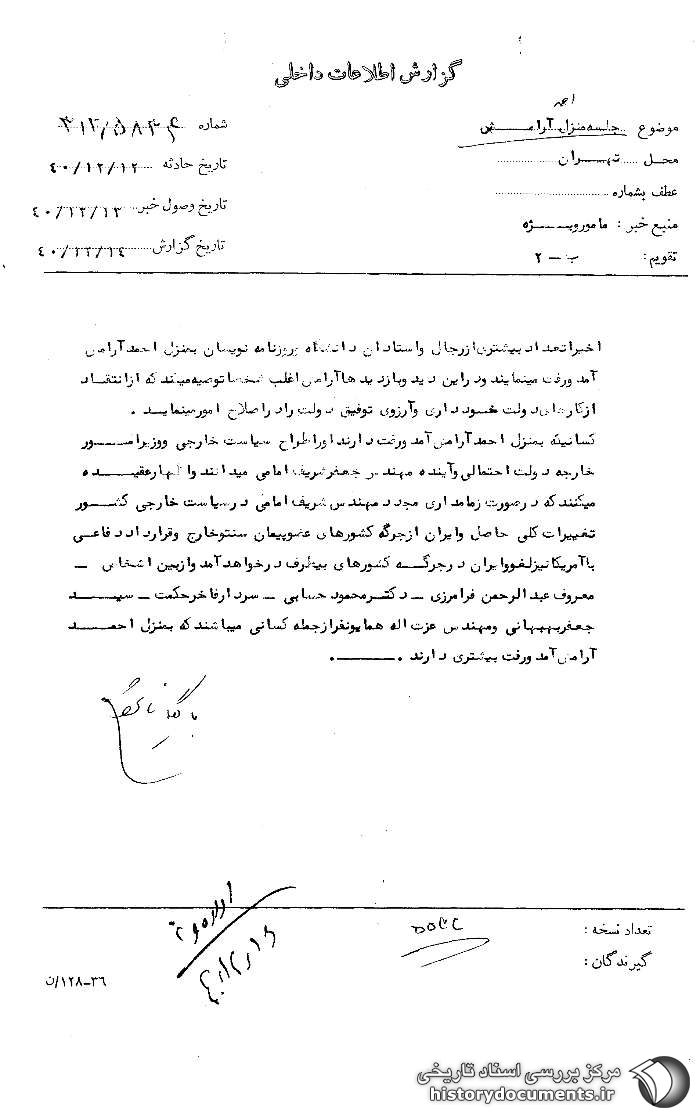 گزارش اطلاعات داخلی
احمد
موضوع جلسه منزل آرامش
شماره
محل تهران
تاریخ حادثه ۴۰/۱۲/۱۲
عطف بشماره
تاریخ وصول خبر ۴۰/۱۲/۱۳
منبع خبر : مامور ویژه
تاریخ گزارش ۴۰/۱۲/۱۴
تقویم : ب – ۲
اخیرا تعداد بیشتری از رجال و استادان دانشگاه بروزنامه نویسان بمنزل احمد آرامش
آمد و رفت مینمایند و در این دید و بازدیدها آرامش اغلب شخصا توصیه میکند که از انتقاد
از کارهای دولت خودداری و آرزوی توفیق دولت را در اصلاح امور مینماید .
کسانیکه بمنزل احمد آرامش آمد و رفت دارند او را طراح سیاست خارجی و وزیر امور
خارجه دولت احتمالی و آینده مهندس جعفر شریف امامی میدانند و اظهار عقیده
میکنند که در صورت زمامداری مجدد مهندس شریف امامی در سیاست خارجی کشور
تغییرات کلی حاصل و ایران از جرگه کشورهای عضو پیمان سنتو خارج و قرارداد دفاعی
با آمریکا نیز لغو و ایران در جرگه کشورهای بیطرف در خواهد آمد و از بین اشخاص –
معروف عبدالرحمن فرامرزی – دکتر محمود حسابی – سردار فاخر حکمت – سید
جعفر بهبهانی و مهندس عزت اله همایونفر از جمله کسانی میباشند که بمنزل احمد
آرامش آمد و رفت بیشتری دارند .
تعداد نسخه :
گیرندگان :
۳۶–۱۲۸/ن
مرکز بررسی اسناد تاریخی
historydocuments.ir